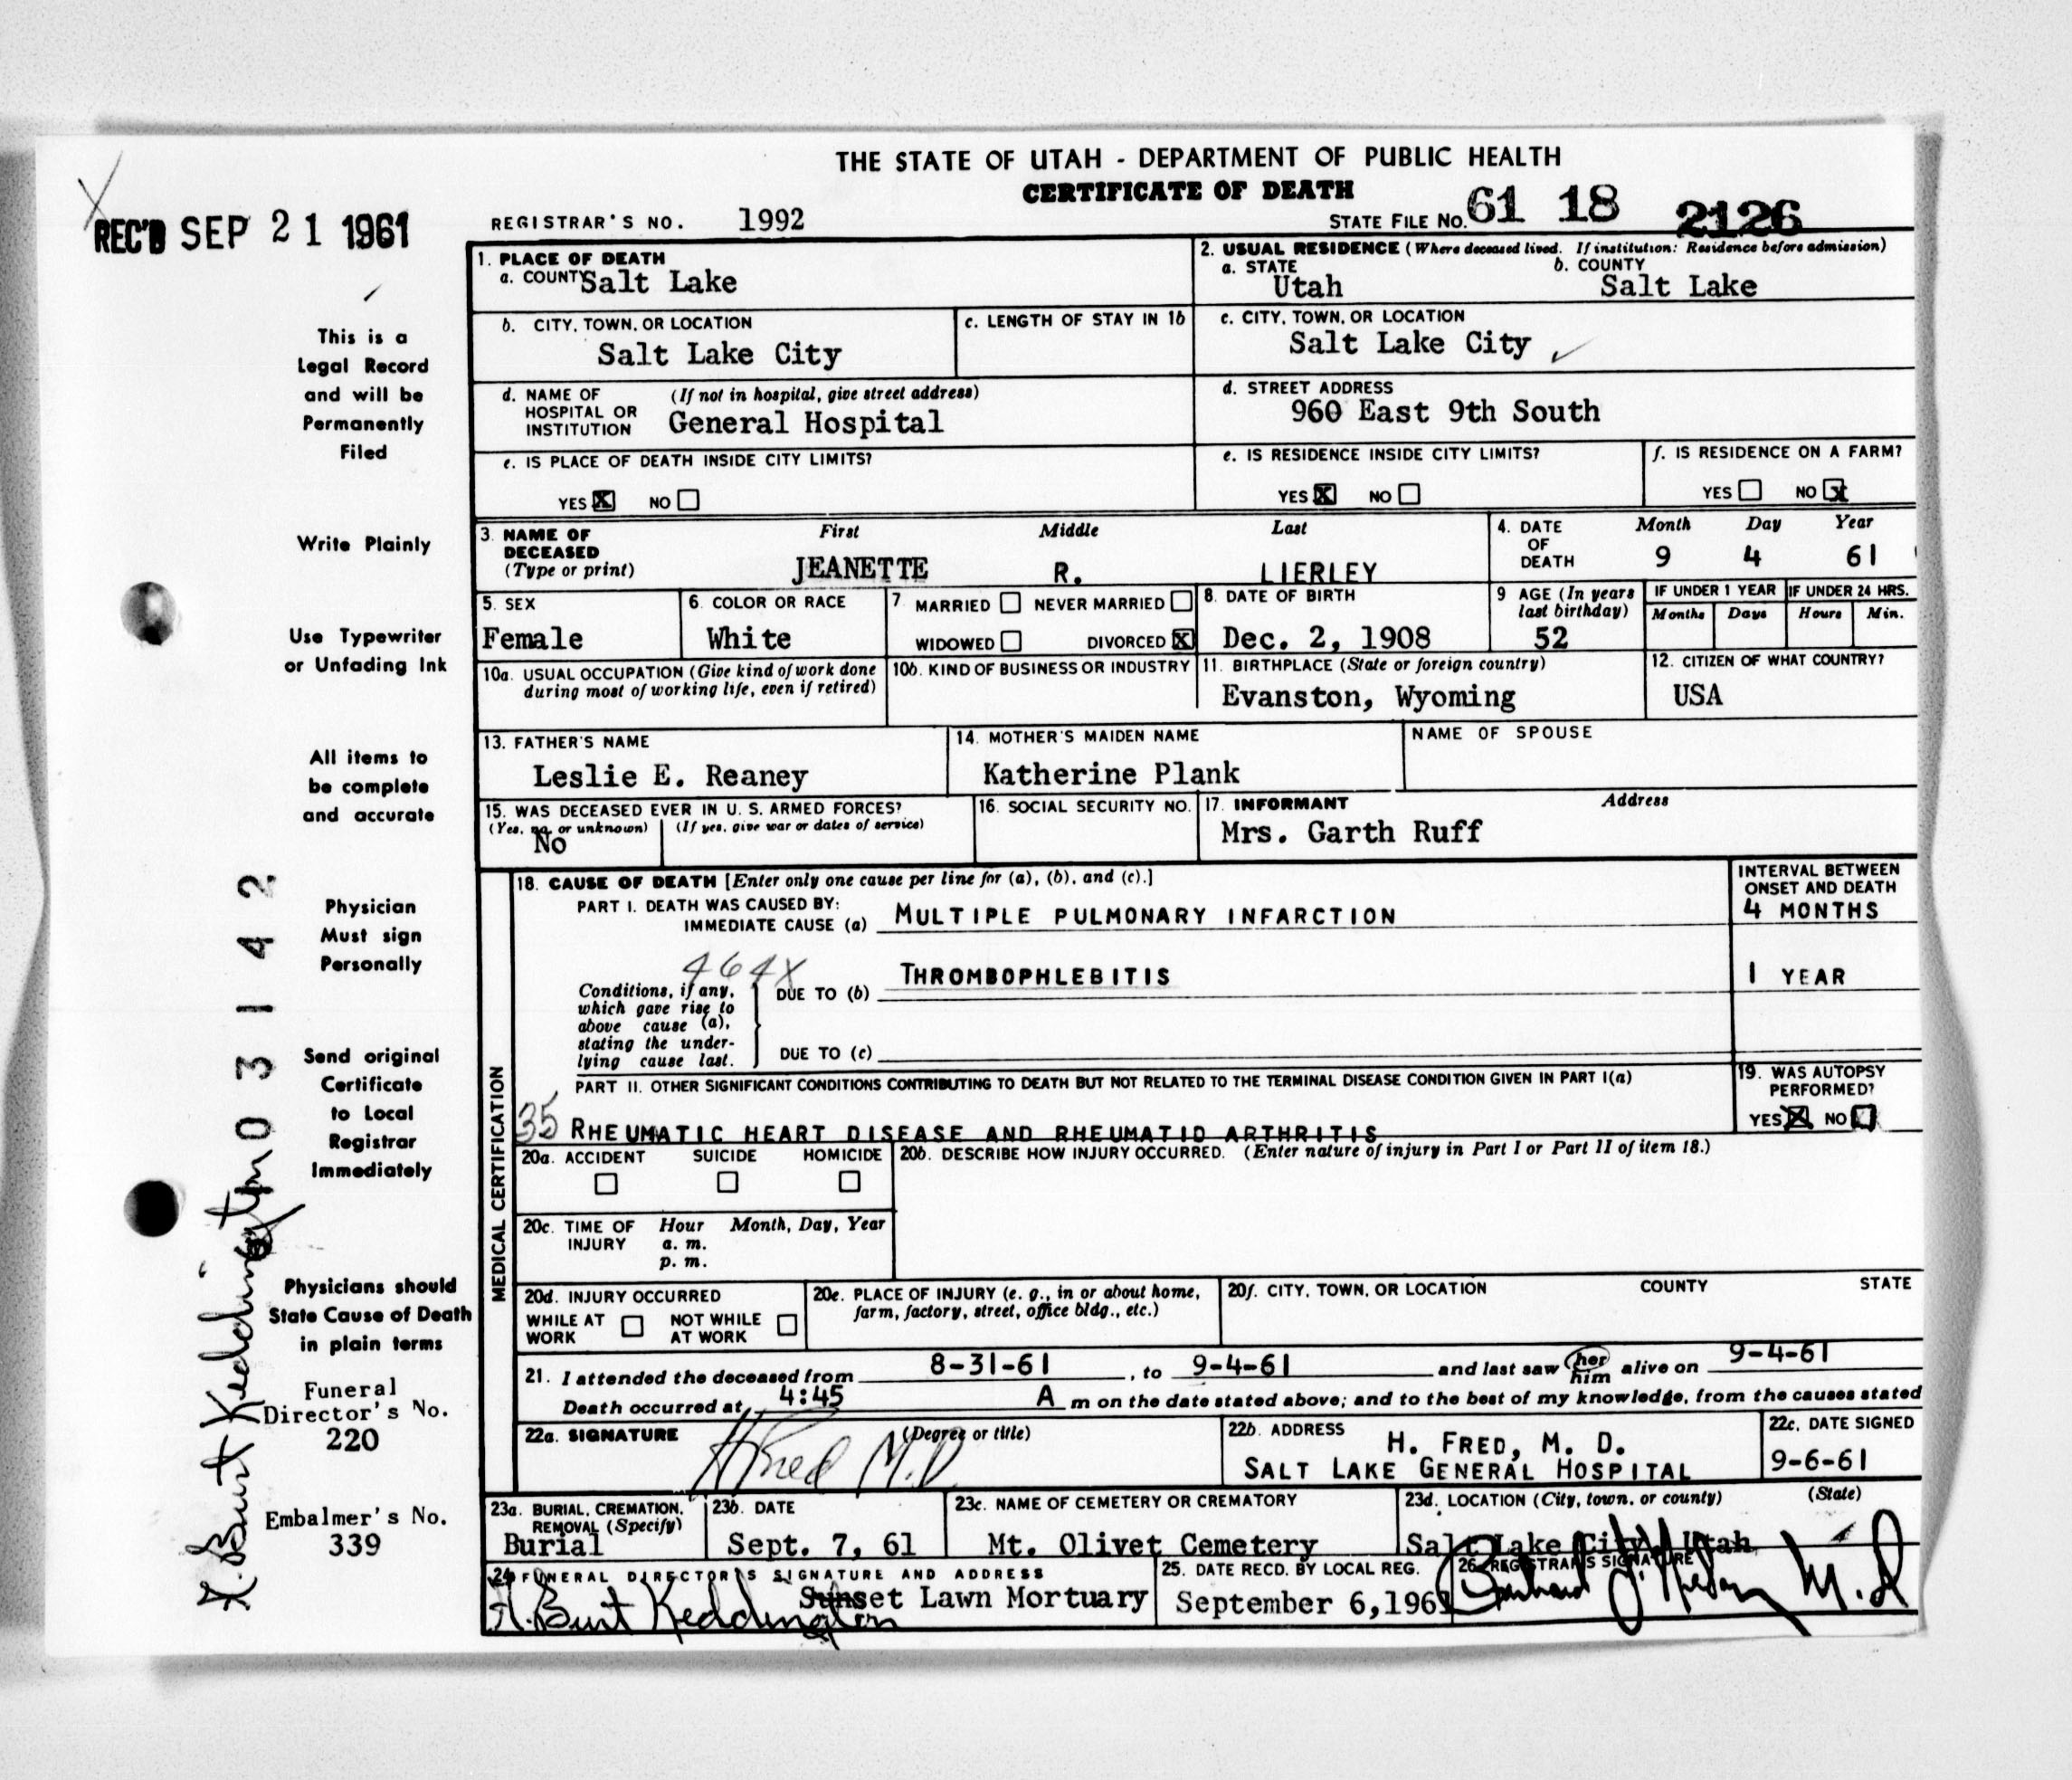 THE STATE OF UTAH - DEPARTMENT OF PUBLIC HEALTH
CERTIFICATE OF DEATH
REC'D SEP 21 1961
REGISTRAR'S NO. 1992
STATE FILE NO. 61 18 2126
1. PLACE OF DEATH
a. COUNTY Salt Lake
2. USUAL RESIDENCE (Where deceased lived. If institution: Residence before admission)
a. STATE Utah
b. COUNTY Salt Lake
b. CITY, TOWN, OR LOCATION
Salt Lake City
c. LENGTH OF STAY IN 1b
c. CITY, TOWN, OR LOCATION
Salt Lake City
d. NAME OF HOSPITAL OR INSTITUTION (If not in hospital, give street address)
General Hospital
d. STREET ADDRESS
960 East 9th South
e. IS PLACE OF DEATH INSIDE CITY LIMITS?
YES X NO
e. IS RESIDENCE INSIDE CITY LIMITS?
YES X NO
f. IS RESIDENCE ON A FARM?
YES NO X
3. NAME OF DECEASED (Type or print)
First Middle Last
JEANETTE R. LIERLEY
4. DATE OF DEATH
Month Day Year
9 4 61
5. SEX
Female
6. COLOR OR RACE
White
7. MARRIED NEVER MARRIED
WIDOWED DIVORCED X
8. DATE OF BIRTH
Dec. 2, 1908
9 AGE (In years last birthday)
52
IF UNDER 1 YEAR
Months Days
IF UNDER 24 HRS.
Hours Min.
10a. USUAL OCCUPATION (Give kind of work done during most of working life, even if retired)
10b. KIND OF BUSINESS OR INDUSTRY
11. BIRTHPLACE (State or foreign country)
Evanston, Wyoming
12. CITIZEN OF WHAT COUNTRY?
USA
13. FATHER'S NAME
Leslie E. Reaney
14. MOTHER'S MAIDEN NAME
Katherine Plank
NAME OF SPOUSE
15. WAS DECEASED EVER IN U. S. ARMED FORCES?
(Yes, no, or unknown) (If yes, give war or dates of service)
No
16. SOCIAL SECURITY NO.
17. INFORMANT Address
Mrs. Garth Ruff
MEDICAL CERTIFICATION
18. CAUSE OF DEATH [Enter only one cause per line for (a), (b), and (c).]
INTERVAL BETWEEN ONSET AND DEATH
PART I. DEATH WAS CAUSED BY:
IMMEDIATE CAUSE (a) MULTIPLE PULMONARY INFARCTION
4 MONTHS
464X
Conditions, if any, which gave rise to above cause (a), stating the underlying cause last.
DUE TO (b) THROMBOPHLEBITIS
1 YEAR
DUE TO (c)
PART II. OTHER SIGNIFICANT CONDITIONS CONTRIBUTING TO DEATH BUT NOT RELATED TO THE TERMINAL DISEASE CONDITION GIVEN IN PART I(a)
35 RHEUMATIC HEART DISEASE AND RHEUMATID ARTHRITIS
19. WAS AUTOPSY PERFORMED?
YES X NO
20a. ACCIDENT SUICIDE HOMICIDE
20b. DESCRIBE HOW INJURY OCCURRED. (Enter nature of injury in Part I or Part II of item 18.)
20c. TIME OF INJURY
Hour Month, Day, Year
a. m.
p. m.
20d. INJURY OCCURRED
WHILE AT WORK NOT WHILE AT WORK
20e. PLACE OF INJURY (e. g., in or about home, farm, factory, street, office bldg., etc.)
20f. CITY, TOWN, OR LOCATION COUNTY STATE
21. I attended the deceased from 8-31-61, to 9-4-61 and last saw her him alive on 9-4-61
Death occurred at 4:45 A m on the date stated above; and to the best of my knowledge, from the causes stated
22a. SIGNATURE (Degree or title)
H Fred M.D.
22b. ADDRESS
H. FRED, M. D.
SALT LAKE GENERAL HOSPITAL
22c. DATE SIGNED
9-6-61
23a. BURIAL, CREMATION, REMOVAL (Specify)
Burial
23b. DATE
Sept. 7, 61
23c. NAME OF CEMETERY OR CREMATORY
Mt. Olivet Cemetery
23d. LOCATION (City, town, or county) (State)
Salt Lake City, Utah
24 FUNERAL DIRECTOR'S SIGNATURE AND ADDRESS
A. Burt Keddington Sunset Lawn Mortuary
25. DATE RECD. BY LOCAL REG.
September 6, 1961
26. REGISTRAR'S SIGNATURE
M.D
This is a
Legal Record
and will be
Permanently
Filed
Write Plainly
Use Typewriter
or Unfading Ink
All items to
be complete
and accurate
Physician
Must sign
Personally
Send original
Certificate
to Local
Registrar
Immediately
Physicians should
State Cause of Death
in plain terms
Funeral
Director's No.
220
Embalmer's No.
339
A. Burt Keddington
03142